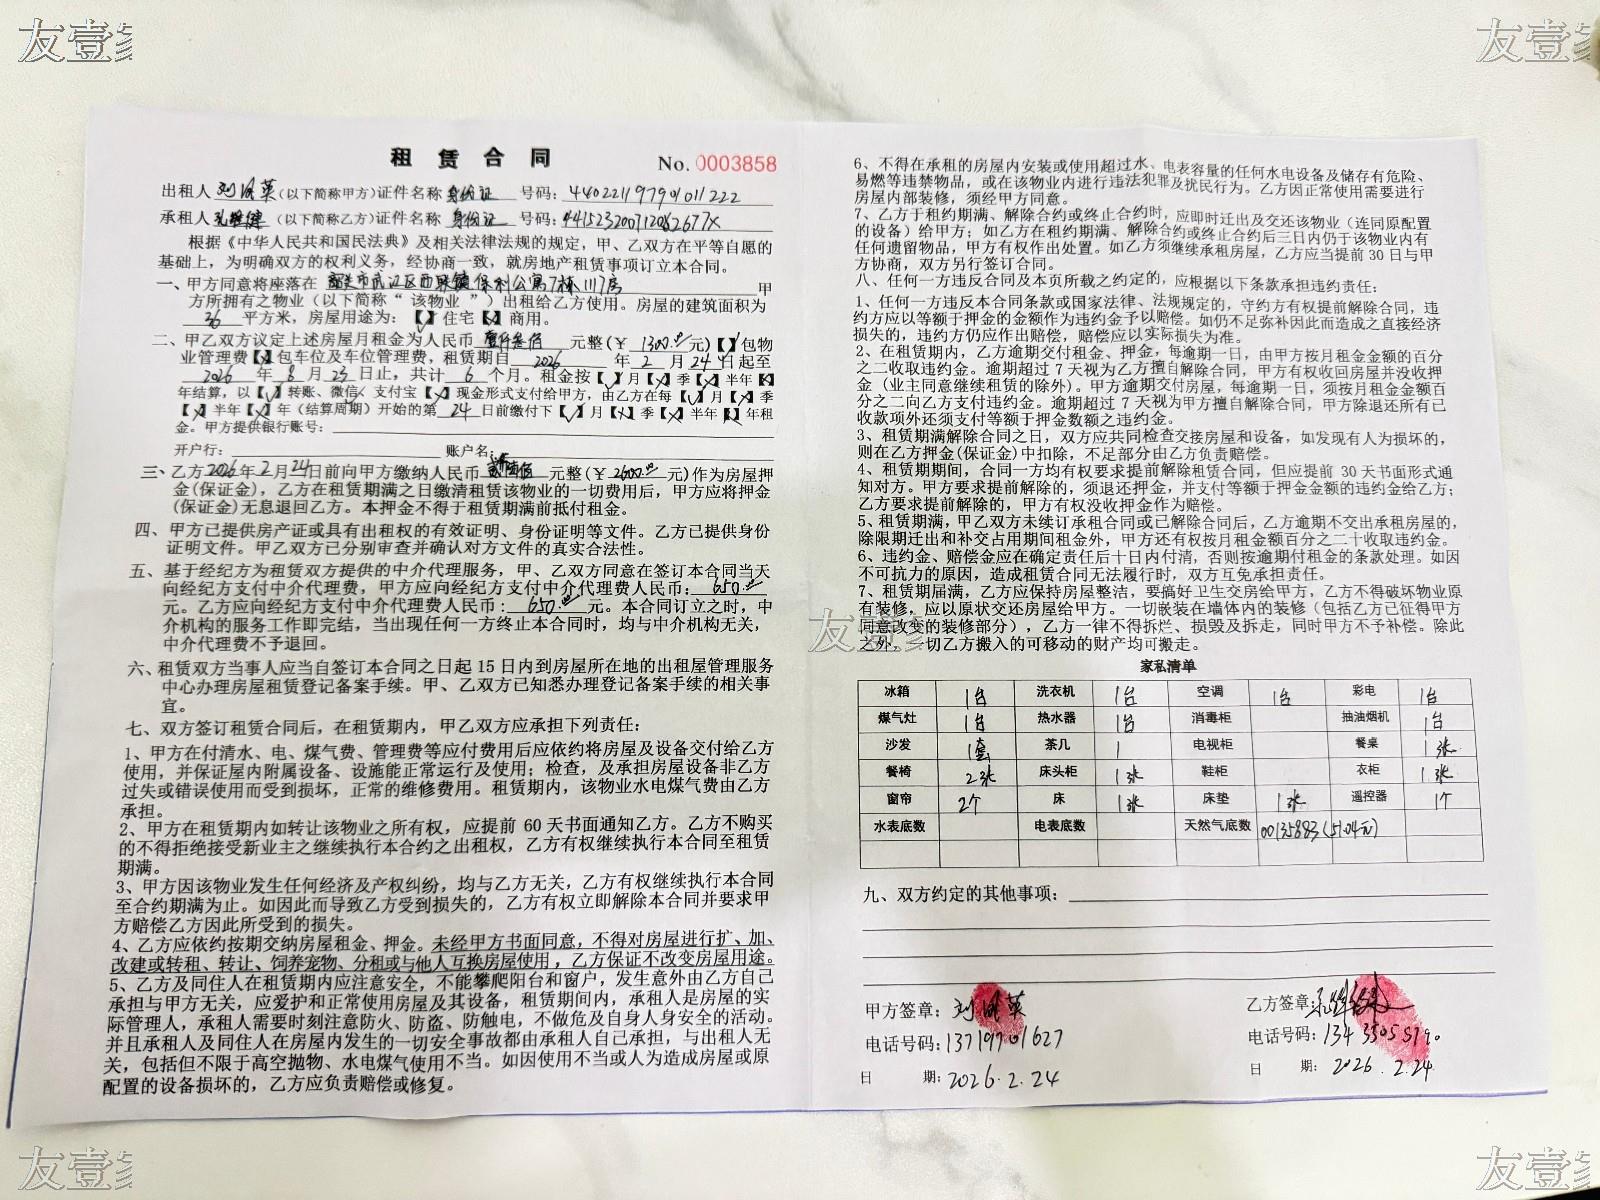 友壹家
友壹家
租 赁 合 同 No. 0003858
出租人 (以下简称甲方)证件名称 身份证 号码: 440221197901011222
承租人 (以下简称乙方)证件名称 身份证 号码:
根据《中华人民共和国民法典》及相关法律法规的规定，甲、乙双方在平等自愿的
基础上，为明确双方的权利义务，经协商一致，就房地产租赁事项订立本合同。
一、甲方同意将座落在 韶关市武江区西联镇保利公寓7栋1117房 甲
方所拥有之物业（以下简称“该物业”）出租给乙方使用。房屋的建筑面积为
36 平方米，房屋用途为：【✓】住宅【×】商用。
二、甲乙双方议定上述房屋月租金为人民币 壹仟叁佰 元整(￥ 1300.00 元)【✓】包物
业管理费【×】包车位及车位管理费，租赁期自 2026 年 2 月 24 日起至
2026 年 8 月 23 日止，共计 6 个月。租金按【✓】月【×】季【×】半年【×】
年结算，以【✓】转账、微信、支付宝【✓】现金形式支付给甲方，由乙方在每【✓】月【×】季
【×】半年【×】年（结算周期）开始的第 24 日前缴付下【✓】月【×】季【×】半年【×】年租
金。甲方提供银行账号：
开户行： 账户名：
三、乙方 2026 年 2 月 24 日前向甲方缴纳人民币 贰仟陆佰 元整(￥ 2600.00 元)作为房屋押
金(保证金)，乙方在租赁期满之日缴清租赁该物业的一切费用后，甲方应将押金
(保证金)无息退回乙方。本押金不得于租赁期满前抵付租金。
四、甲方已提供房产证或具有出租权的有效证明、身份证明等文件。乙方已提供身份
证明文件。甲乙双方已分别审查并确认对方文件的真实合法性。
五、基于经纪方为租赁双方提供的中介代理服务，甲、乙双方同意在签订本合同当天
向经纪方支付中介代理费，甲方应向经纪方支付中介代理费人民币： 650.00
元。乙方应向经纪方支付中介代理费人民币： 650.00 元。本合同订立之时，中
介机构的服务工作即完结，当出现任何一方终止本合同时，均与中介机构无关，
中介代理费不予退回。
六、租赁双方当事人应当自签订本合同之日起 15 日内到房屋所在地的出租屋管理服务
中心办理房屋租赁登记备案手续。甲、乙双方已知悉办理登记备案手续的相关事
宜。
七、双方签订租赁合同后，在租赁期内，甲乙双方应承担下列责任：
1、甲方在付清水、电、煤气费、管理费等应付费用后应依约将房屋及设备交付给乙方
使用，并保证屋内附属设备、设施能正常运行及使用；检查，及承担房屋设备非乙方
过失或错误使用而受到损坏，正常的维修费用。租赁期内，该物业水电煤气费由乙方
承担。
2、甲方在租赁期内如转让该物业之所有权，应提前 60 天书面通知乙方。乙方不购买
的不得拒绝接受新业主之继续执行本合约之出租权，乙方有权继续执行本合同至租赁
期满。
3、甲方因该物业发生任何经济及产权纠纷，均与乙方无关，乙方有权继续执行本合同
至合约期满为止。如因此而导致乙方受到损失的，乙方有权立即解除本合同并要求甲
方赔偿乙方因此所受到的损失。
4、乙方应依约按期交纳房屋租金、押金。未经甲方书面同意，不得对房屋进行扩、加、
改建或转租、转让、饲养宠物、分租或与他人互换房屋使用，乙方保证不改变房屋用途。
5、乙方及同住人在租赁期内应注意安全，不能攀爬阳台和窗户，发生意外由乙方自己
承担与甲方无关，应爱护和正常使用房屋及其设备，租赁期间内，承租人是房屋的实
际管理人，承租人需要时刻注意防火、防盗、防触电，不做危及自身人身安全的活动。
并且承租人及同住人在房屋内发生的一切安全事故都由承租人自己承担，与出租人无
关，包括但不限于高空抛物、水电煤气使用不当。如因使用不当或人为造成房屋或原
配置的设备损坏的，乙方应负责赔偿或修复。
6、不得在承租的房屋内安装或使用超过水、电表容量的任何水电设备及储存有危险、
易燃等违禁物品，或在该物业内进行违法犯罪及扰民行为。乙方因正常使用需要进行
房屋内部装修，须经甲方同意。
7、乙方于租约期满、解除合约或终止合约时，应即时迁出及交还该物业（连同原配置
的设备）给甲方；如乙方在租约期满、解除合约或终止合约后三日内仍于该物业内有
任何遗留物品，甲方有权作出处置。如乙方须继续承租房屋，乙方应当提前 30 日与甲
方协商，双方另行签订合同。
八、任何一方违反合同及本页所载之约定的，应根据以下条款承担违约责任：
1、任何一方违反本合同条款或国家法律、法规规定的，守约方有权提前解除合同，违
约方应以等额于押金的金额作为违约金予以赔偿。如仍不足弥补因此而造成之直接经济
损失的，违约方仍应作出赔偿，赔偿应以实际损失为准。
2、在租赁期内，乙方逾期交付租金、押金，每逾期一日，由甲方按月租金金额的百分
之二收取违约金。逾期超过 7 天视为乙方擅自解除合同，甲方有权收回房屋并没收押
金（业主同意继续租赁的除外）。甲方逾期交付房屋，每逾期一日，须按月租金金额百
分之二向乙方支付违约金。逾期超过 7 天视为甲方擅自解除合同，甲方除退还所有已
收款项外还须支付等额于押金数额之违约金。
3、租赁期满解除合同之日，双方应共同检查交接房屋和设备，如发现有人为损坏的，
则在乙方押金(保证金)中扣除，不足部分由乙方负责赔偿。
4、租赁期期间，合同一方均有权要求提前解除租赁合同，但应提前 30 天书面形式通
知对方。甲方要求提前解除的，须退还押金，并支付等额于押金金额的违约金给乙方；
乙方要求提前解除的，甲方有权没收押金作为赔偿。
5、租赁期满，甲乙双方未续订承租合同或已解除合同后，乙方逾期不交出承租房屋的，
除限期迁出和补交占用期间租金外，甲方还有权按月租金额百分之二十收取违约金。
6、违约金、赔偿金应在确定责任后十日内付清，否则按逾期付租金的条款处理。如因
不可抗力的原因，造成租赁合同无法履行时，双方互免承担责任。
7、租赁期届满，乙方应保持房屋整洁，要搞好卫生交房给甲方，乙方不得破坏物业原
有装修，应以原状交还房屋给甲方。一切嵌装在墙体内的装修（包括乙方已征得甲方
同意改变的装修部分），乙方一律不得拆烂、损毁及拆走，同时甲方不予补偿。除此
之外，一切乙方搬入的可移动的财产均可搬走。
友壹家
家私清单
冰箱 1台 洗衣机 1台 空调 1台 彩电 1台
煤气灶 1台 热水器 1台 消毒柜 抽油烟机 1台
沙发 1套 茶几 1 电视柜 餐桌 1张
餐椅 2张 床头柜 1张 鞋柜 衣柜 1张
窗帘 2个 床 1张 床垫 1张 遥控器 1个
水表底数 电表底数 天然气底数 00135883(51.04元)
九、双方约定的其他事项：
甲方签章： 乙方签章：
电话号码: 13719701627 电话号码:
日 期: 2026.2.24 日 期: 2026.2.24
友壹家
友壹家